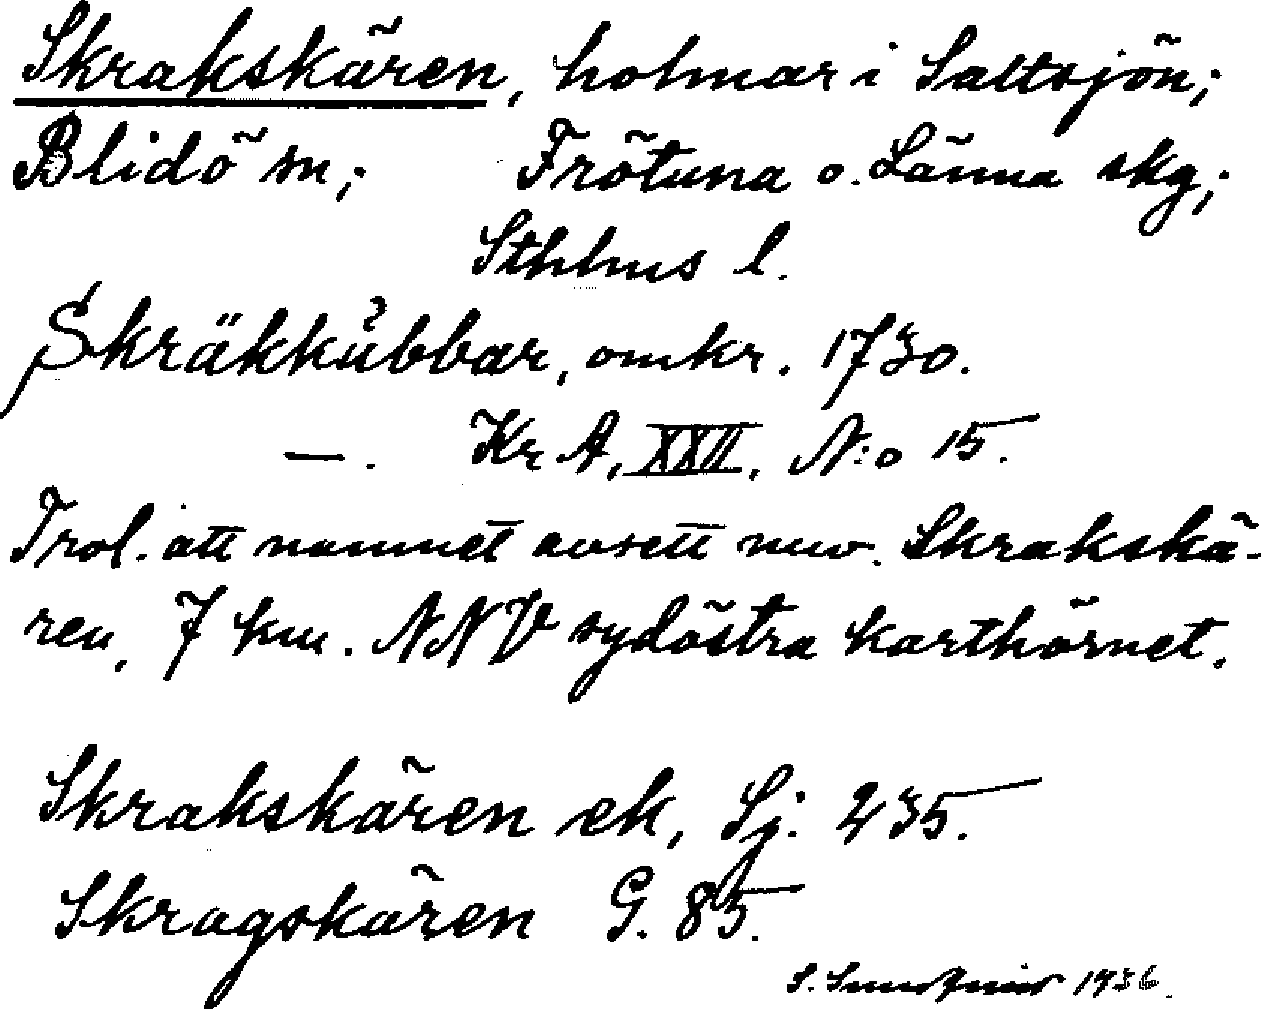 Skrakskären, holmar i Saltsjön;
Blidö sn; Frötuna o. Länna skg;
Sthlms l.
Skräkkubbar, omkr. 1730.
—. Kr A, XXII, N:o 15.
Trol. att namnet avsett nuv. Skrakskä-
ren, 7 km. NNV sydöstra karthörnet.
Skrakskären ek, Sj. 235.
Skragskären G. 85.
S. 1936.